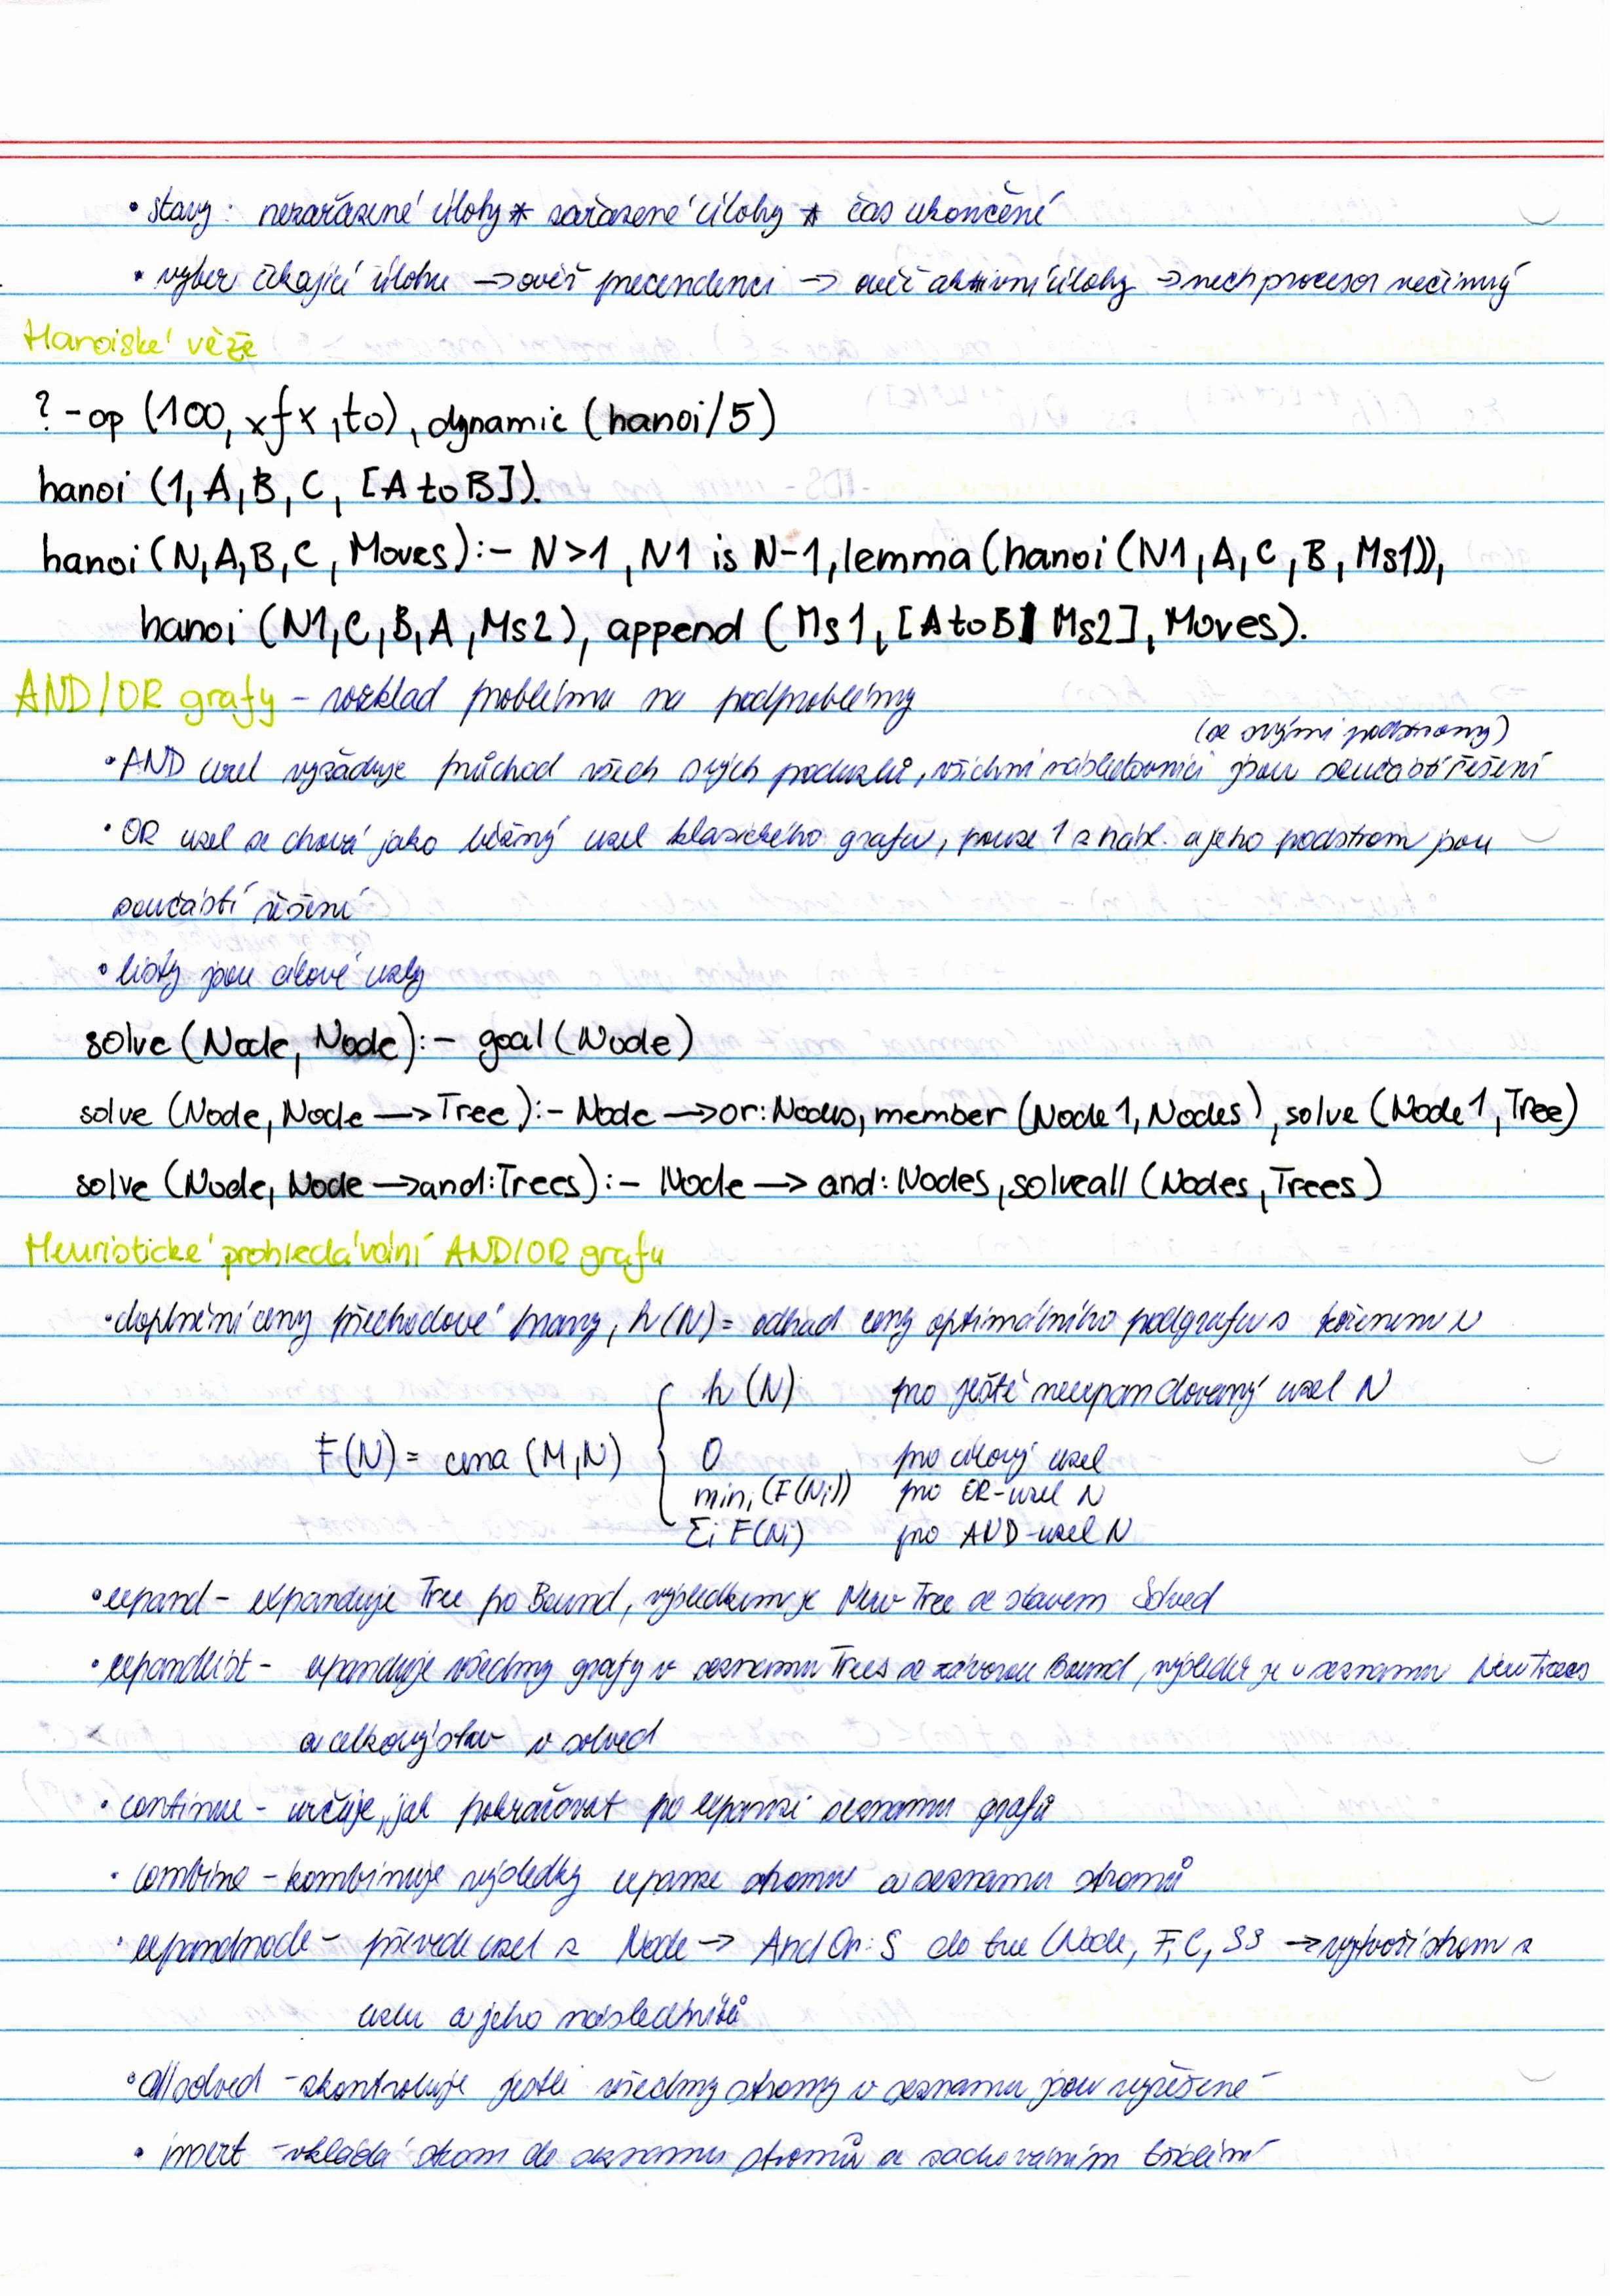 • stavy: nezařazené úlohy * zařazené úlohy * čas ukončení
• vyber čekající úlohu → ověř precendenci → ověř aktivní úlohy → nech procesor nečinný
Hanoiské věže
?-op (100, xfx, to), dynamic (hanoi/5)
hanoi (1, A, B, C, [A to B]).
hanoi (N, A, B, C, Moves):- N>1, N1 is N-1, lemma (hanoi (N1, A, C, B, Ms1)),
hanoi (N1, C, B, A, Ms2), append (Ms1, [A to B| Ms2], Moves).
AND/OR grafy - rozklad problému na podproblémy
(se svými podstromy)
• AND uzel vyžaduje průchod všech svých poduzlů, všichni následovníci jsou součástí řešení
• OR uzel se chová jako běžný uzel klasického grafu, pouze 1 z násl. a jeho podstrom jsou
součástí řešení
• listy jsou cílové uzly
solve (Node, Node):- goal (Node)
solve (Node, Node → Tree):- Node → or: Nodes, member (Node1, Nodes), solve (Node1, Tree)
solve (Node, Node → and: Trees):- Node → and: Nodes, solveall (Nodes, Trees)
Heuristické prohledávání AND/OR grafu
• doplnění ceny přechodové hrany, h(N) = odhad ceny optimálního podgrafu s kořenem N
h(N) pro ještě neexpandovaný uzel N
F(N) = cena (M,N) { 0 pro cílový uzel
min_i (F(N_i)) pro OR-uzel N
Σ_i F(N_i) pro AND-uzel N
• expand - expanduje Tree po Bound, výsledkem je New Tree se stavem Solved
• expandlist - expanduje všechny grafy v seznamu Trees se závorou Bound, výsledek je v seznamu NewTrees
a celkový stav v solved
• continue - určuje, jak pokračovat po expanzi seznamu grafů
• combine - kombinuje výsledky expanze stromu a seznamu stromů
• expandnode - převede uzel z Node → AndOr: S do tree (Node, F, C, SS → vytvoří strom z
uzlu a jeho následníků
• allsolved - zkontroluje jestli všechny stromy v seznamu jsou vyřešené
• insert - vkládá strom do seznamu stromů se zachováním třídění